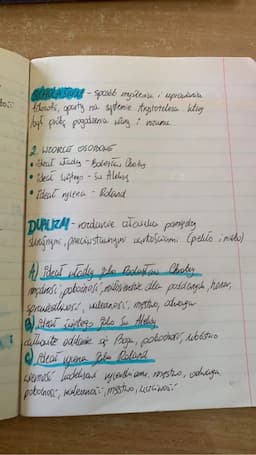 SCHOLASTYKA - sposób myślenia i uprawiania
filozofii, oparty na systemie Arystotelesa który
był próbą pogodzenia wiary i rozumu
2. WZORCE OSOBOWE
• Ideał władcy - Bolesław Chrobry
• Ideał świętego - Św Aleksy
• Ideał rycerza - Roland
DUALIZM - rozdarcie człowieka pomiędzy
skrajnymi, przeciwstawnymi wartościami (piekło i niebo)
A) Ideał władcy jako Bolesław Chrobry
mądrość, pobożność, miłosierdzie dla poddanych, honor,
sprawiedliwość, waleczność, męstwo, odwaga
B) Ideał świętego jako Św Aleksy
całkowite oddanie się Bogu, pobożność, ubóstwo
C) Ideał rycerza jako Roland
wierność, męstwo, odwaga
pobożność, waleczność, męstwo, uczciwość